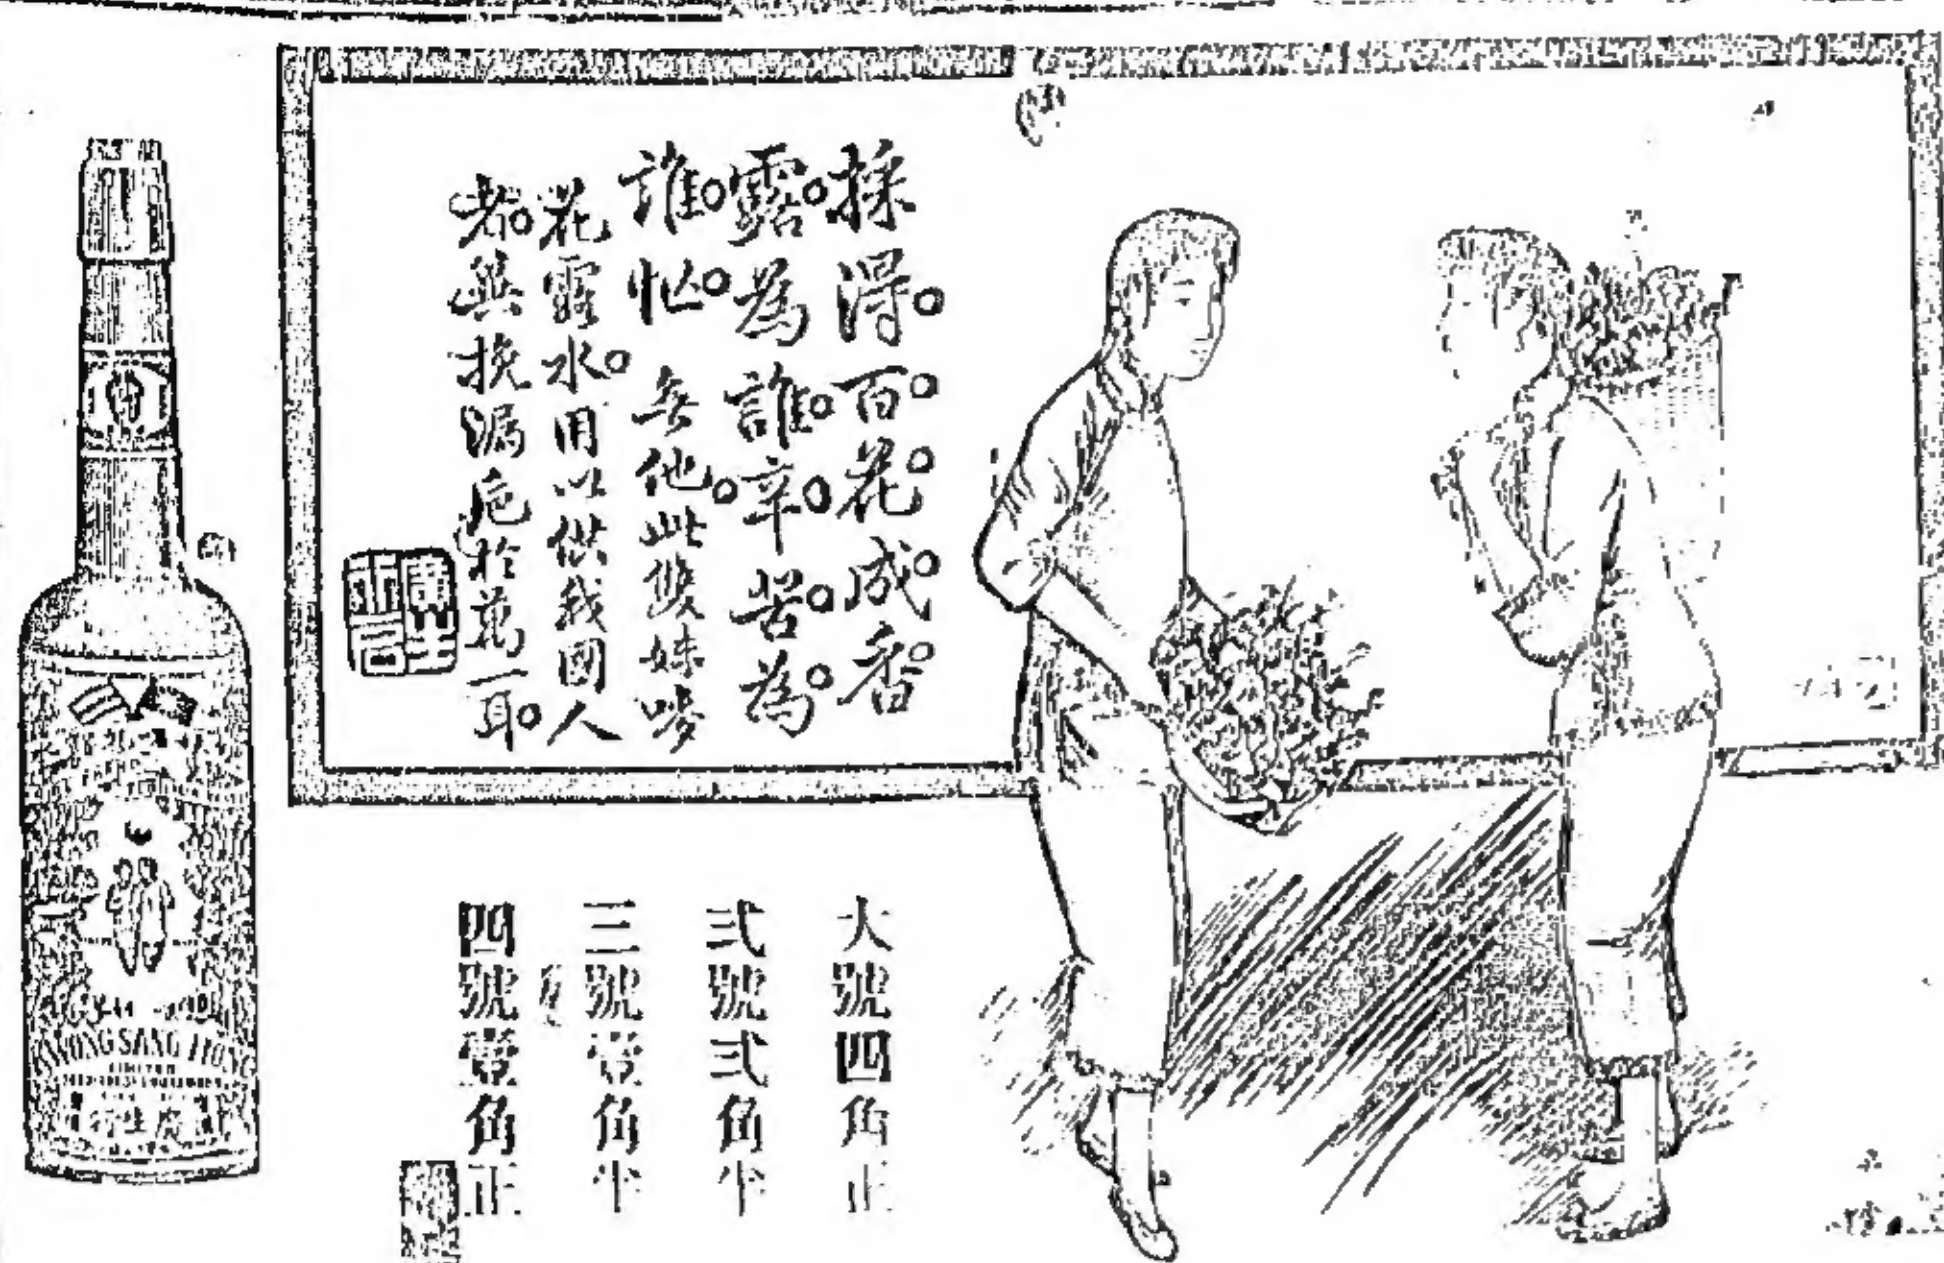 採得。百。花。成。香。
露。為誰。辛。苦。為。
誰。忙。無他。此雙妹嘜
花露水。用以供我國人
者。與挽漏巵於萬一耳。
廣生行言
大號四角正
弍號弍角半
三號壹角半
四號壹角正
KWONG SANG HONG
LIMITED
行生廣